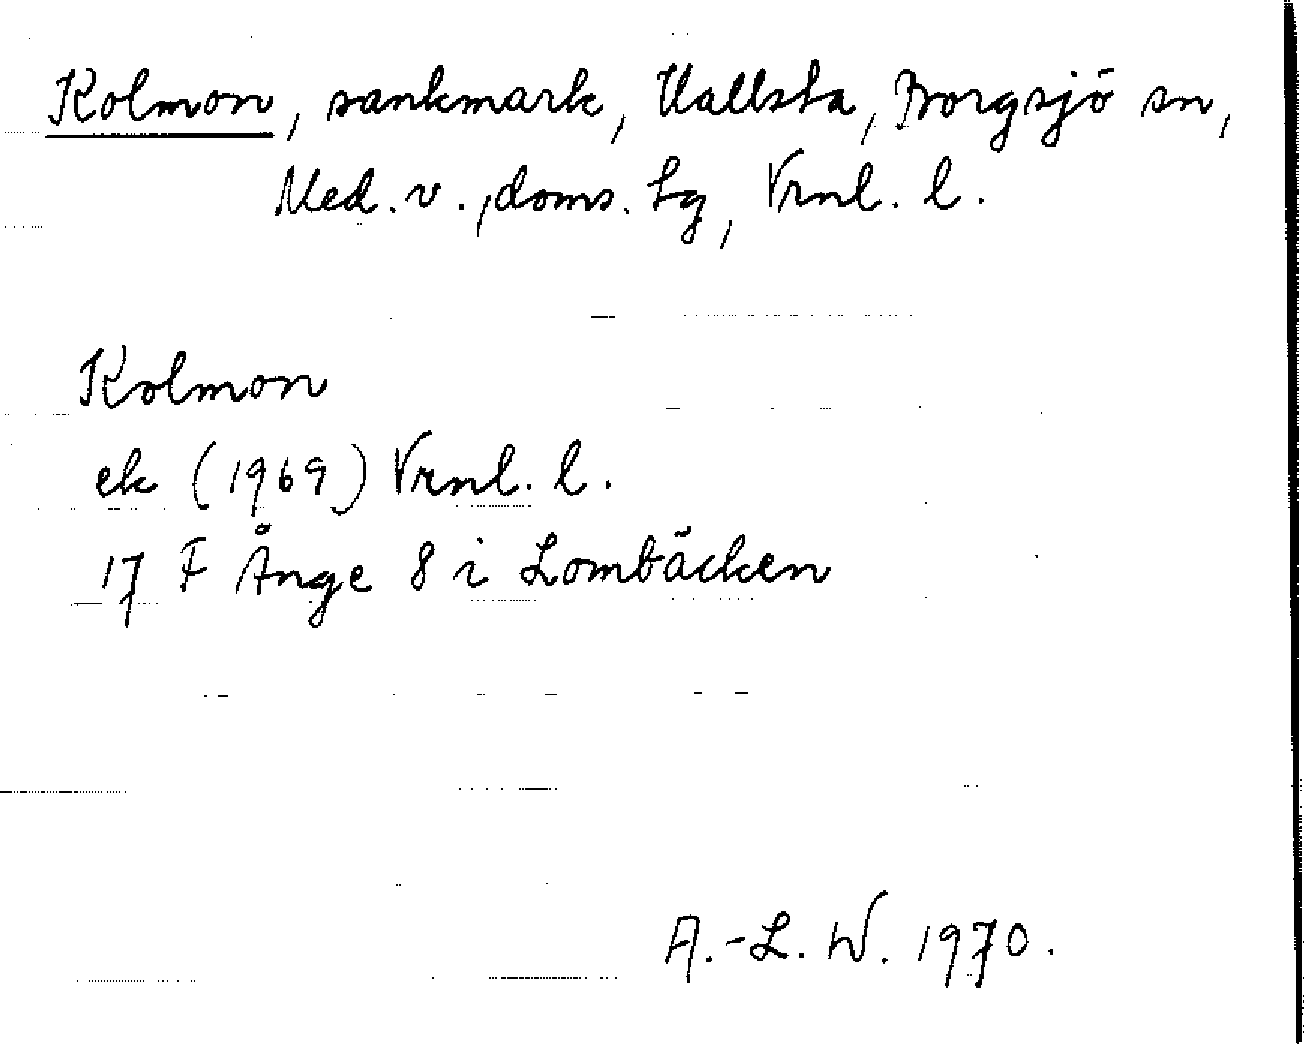 Kolmon, sankmark, Vallsta, Borgsjö sn,
Med. v., doms. lg, Vrnl. l.
Kolmon
ek (1969) Vrnl. l.
17 F Ånge 8 i Lombäcken
A.-L. W. 1970.